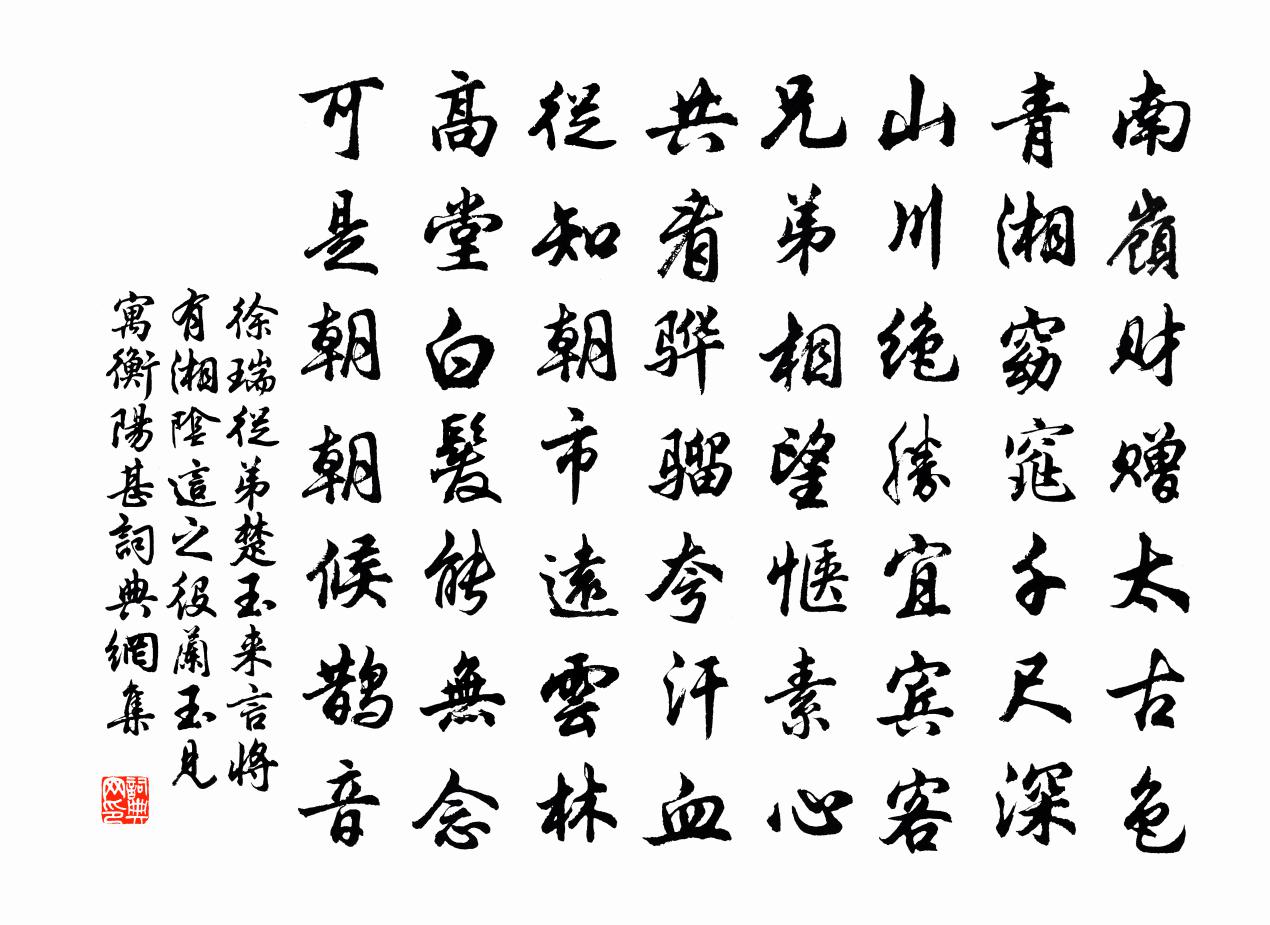 南嶺财赠太古色
青湘窈窕千尺深
山川绝勝宜宾客
兄弟相望惬素心
共看骅骝夸汗血
從知朝市遠雲林
高堂白髮能無念
可是朝朝候鹊音
徐瑞從弟楚玉来言将
有湘陰這之役蘭玉見
寓衡陽甚詞典網集
詞典网印